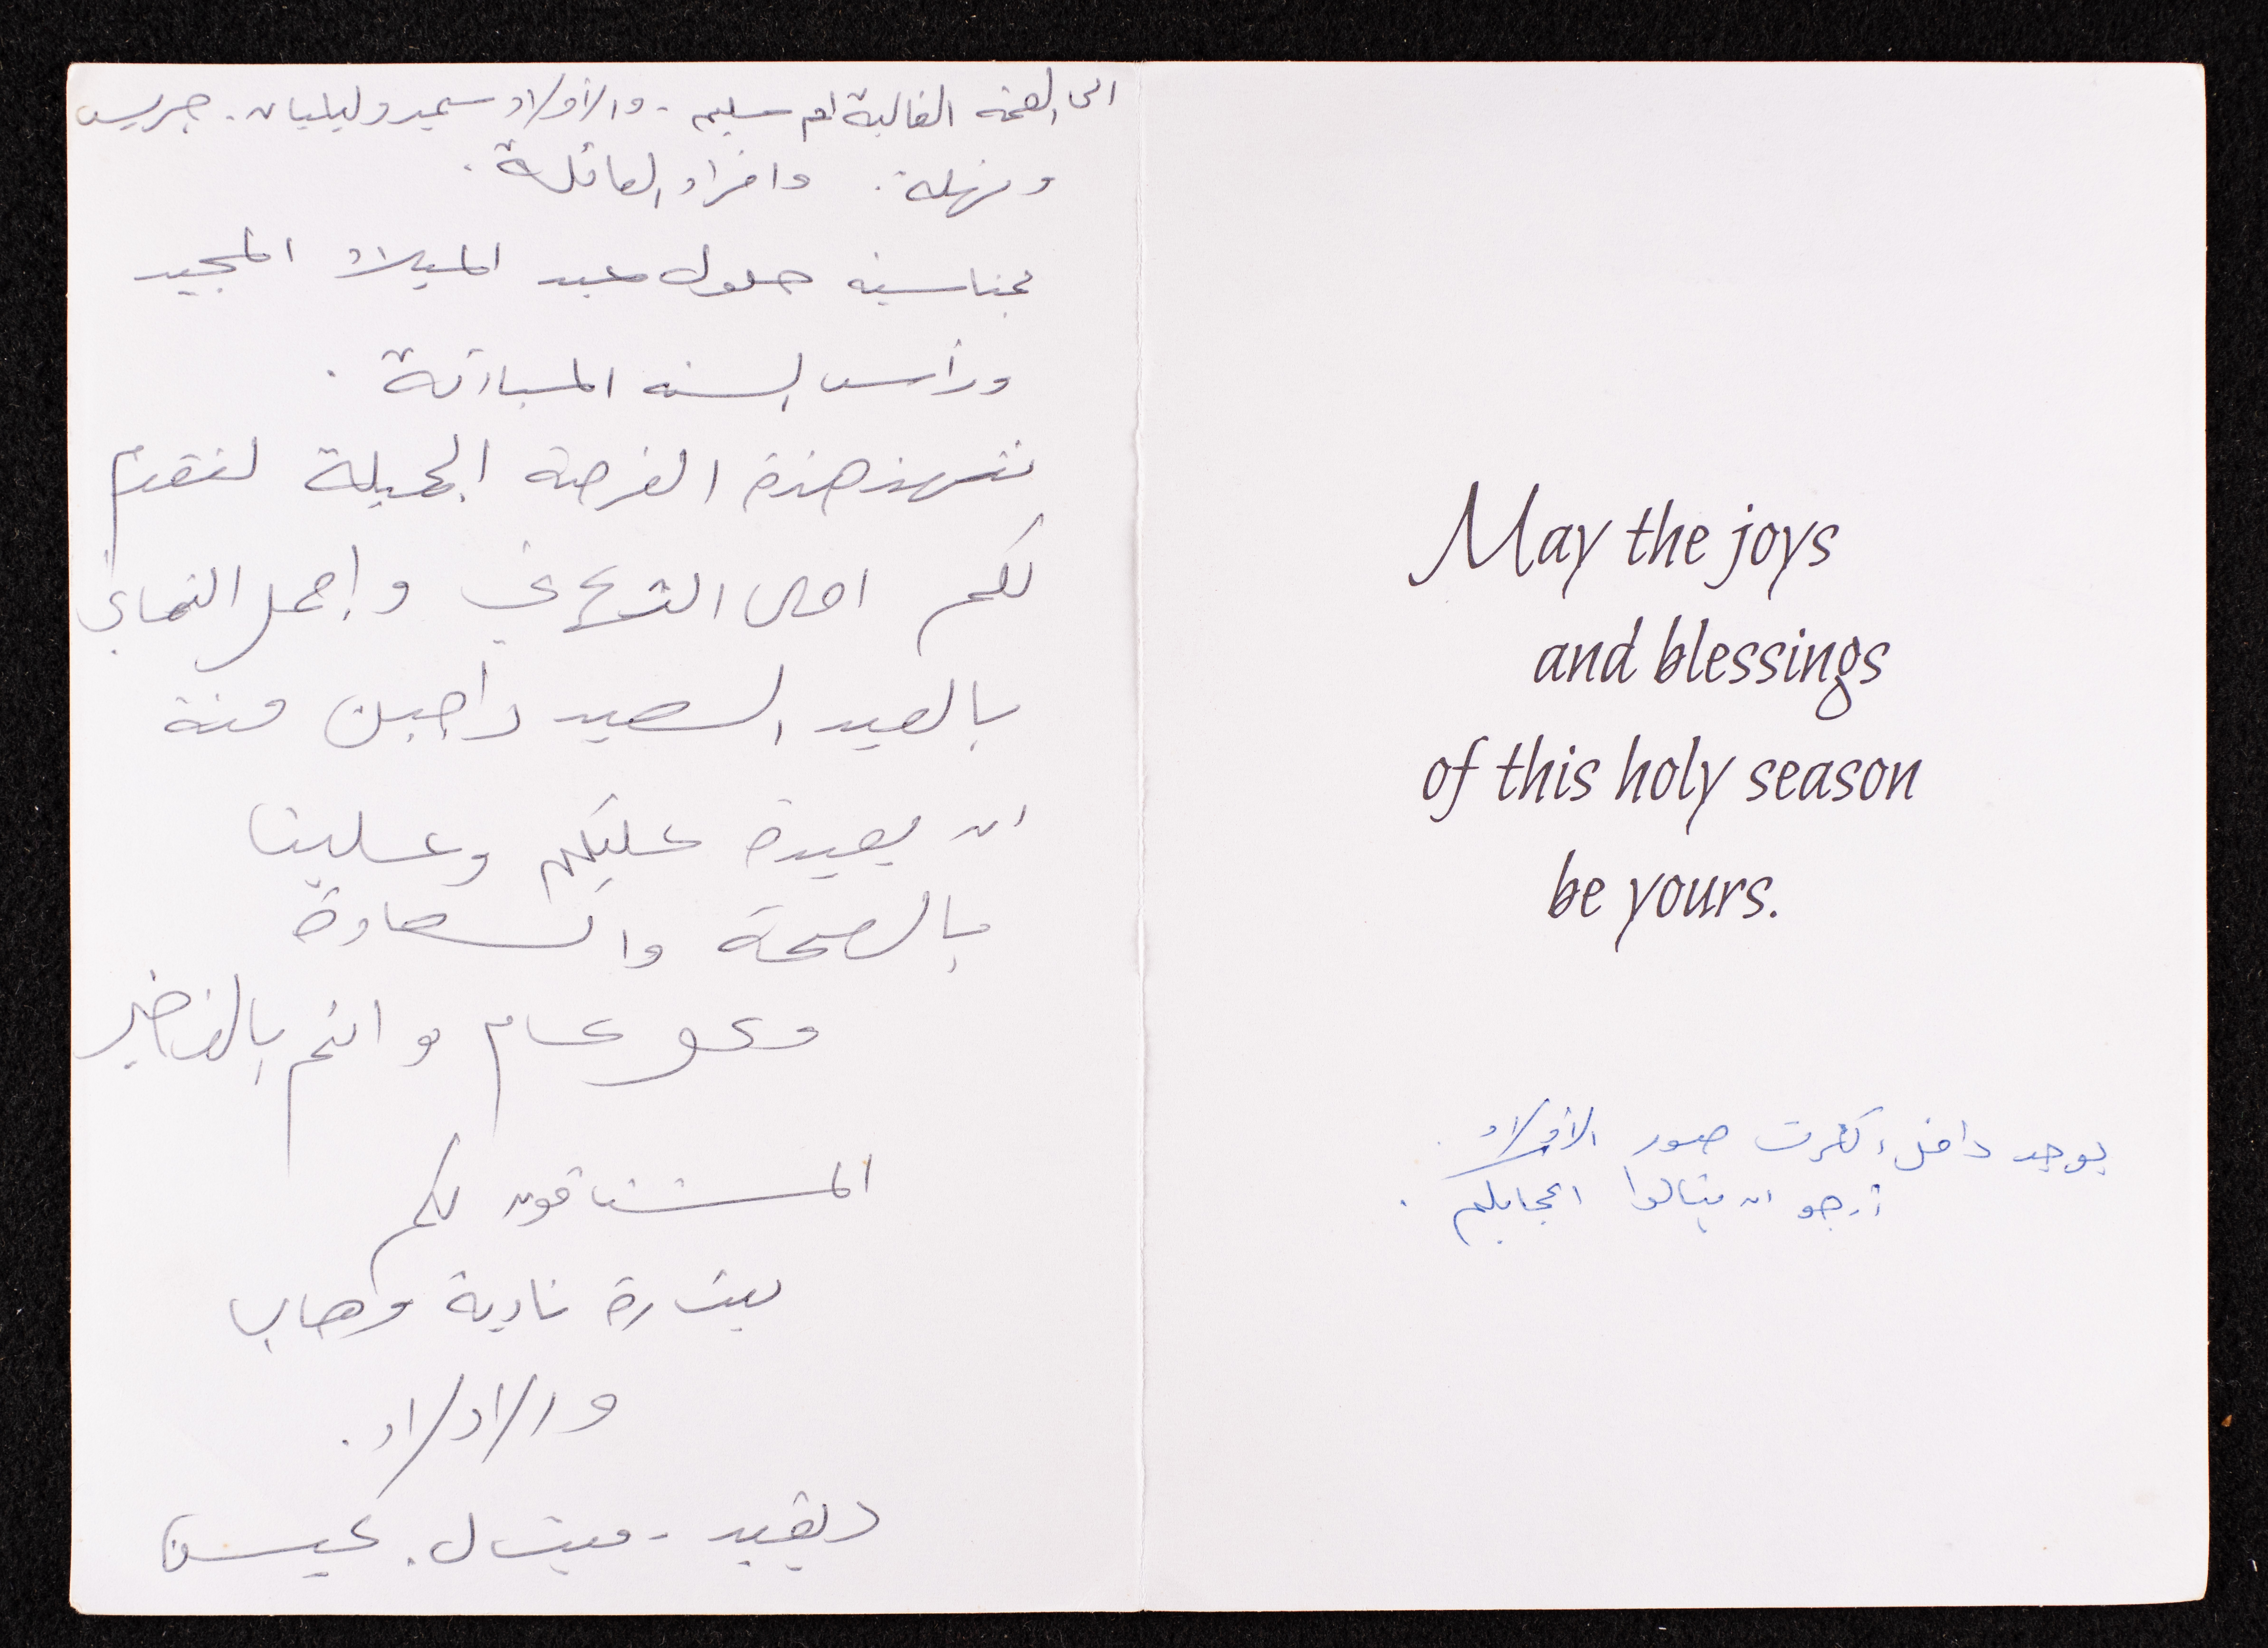 الى العمة الغالية ام سليم - والأولاد سمير وليليان - جريس
ونهلة . وافراد العائلة .
بمناسبة حلول عيد الميلاد المجيد
ورأس السنه المباركة .
ننتهز هذة الفرصة الجميلة لنقدم
لكم احلى التهاني واجمل الاماني
بالعيد السعيد راجين منة
ان يعيدة عليكم وعلينا
بالصحة والسعادة
وكل عام وانتم بالف خير
المشتاقون لكم
بشارة نادية وهاب
والاولاد .
ديفيد - ميشال . عيسى
May the joys
and blessings
of this holy season
be yours.
يوجد داخل الكرت صور الأولاد .
أرجو ان ينالوا اعجابكم .